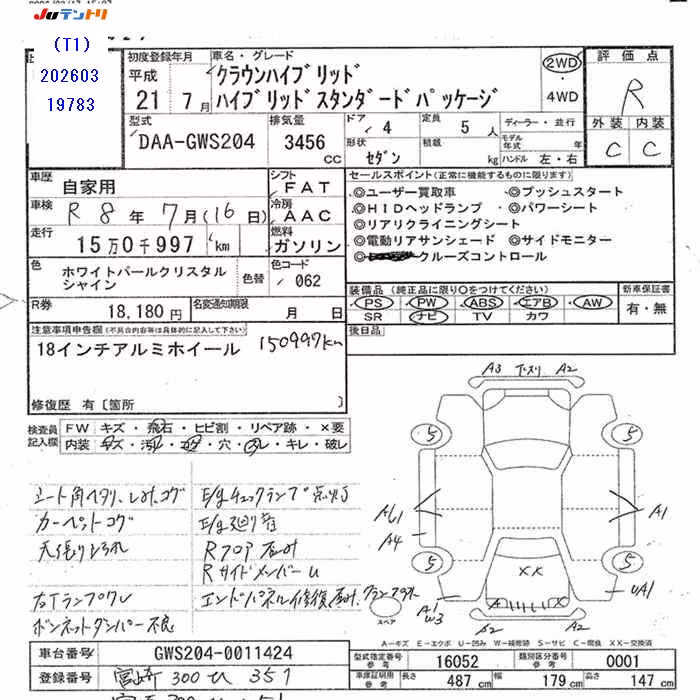 JUテントリ
(T1)
202603
19783
初度登録年月
平成
21 7月
車名・グレード
クラウンハイブリッド
ハイブリッドスタンダードパッケージ
2WD
4WD
評価点
R
外装 内装
C C
型式
DAA-GWS204
排気量
3456 cc
ドア 4
定員 5人
形状 セダン
積載 kg
ディーラー・並行
モデル年式 年
ハンドル 左・右
車歴
自家用
シフト
FAT
車検
R 8年 7月(16日)
冷房
AAC
走行
15万0千997 km
燃料
ガソリン
セールスポイント(正常に機能するものに限ります)
◎ユーザー買取車 ◎プッシュスタート
◎HIDヘッドランプ ◎パワーシート
◎リアリクライニングシート
◎電動リアサンシェード ◎サイドモニター
クルーズコントロール
色
ホワイトパールクリスタルシャイン
色替
色コード
062
R券
18,180円
名変通知期限 月 日
装備品(純正品に限り○をつけてください)
PS PW ABS エアB AW
SR ナビ TV カワ
新車保証書
有・無
後日品
注意事項申告欄(不具合内容等は具体的に記入して下さい)
18インチアルミホイール 150997km
修復歴 有〔箇所 〕
検査員記入欄
FW キズ・飛石・ヒビ割・リペア跡・×要
内装 キズ・汚れ・コゲ・穴・スレ・キレ・破レ
シート角ヘタリ、しみ、コゲ
カーペットコゲ
天張りよごれ
右Tランプワレ
ボンネットダンパー不良
E/gチェックランプ点灯
E/g廻り音
Rフロア
RサイドメンバーU
エンドパネル修復
A3 A2
5 5
AU1 A1
A4
5 5
XX
A1
W3
UA1
A2 A2
スペア
A-キズ E-エクボ U-凹み W-補修跡 S-サビ C-腐食 XX-交換済
車台番号
GWS204-0011424
登録番号
宮崎 300 ひ 351
型式指定番号 参考
16052
類別区分番号 参考
0001
車庫証明用 参考
長さ 487 cm
幅 179 cm
高さ 147 cm